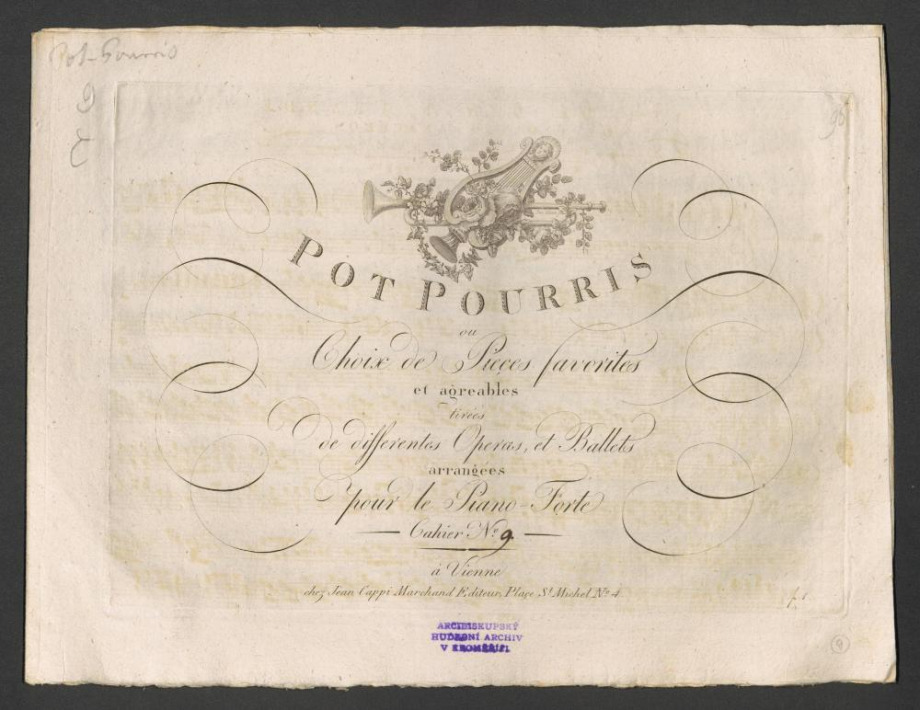 Pot-Pourris
9
POT POURRIS
ou
Choix de Pieces favorites
et agréables
tirées
de differentes Operas, et Ballets
arrangées
pour le Piano-Forte
Cahier No. 9
à Vienne
chez Jean Cappi Marchand Editeur, Place St Michel No 4.
ARCIBISKUPSKÝ
HUDEBNÍ ARCHIV
V KROMĚŘÍŽI
9